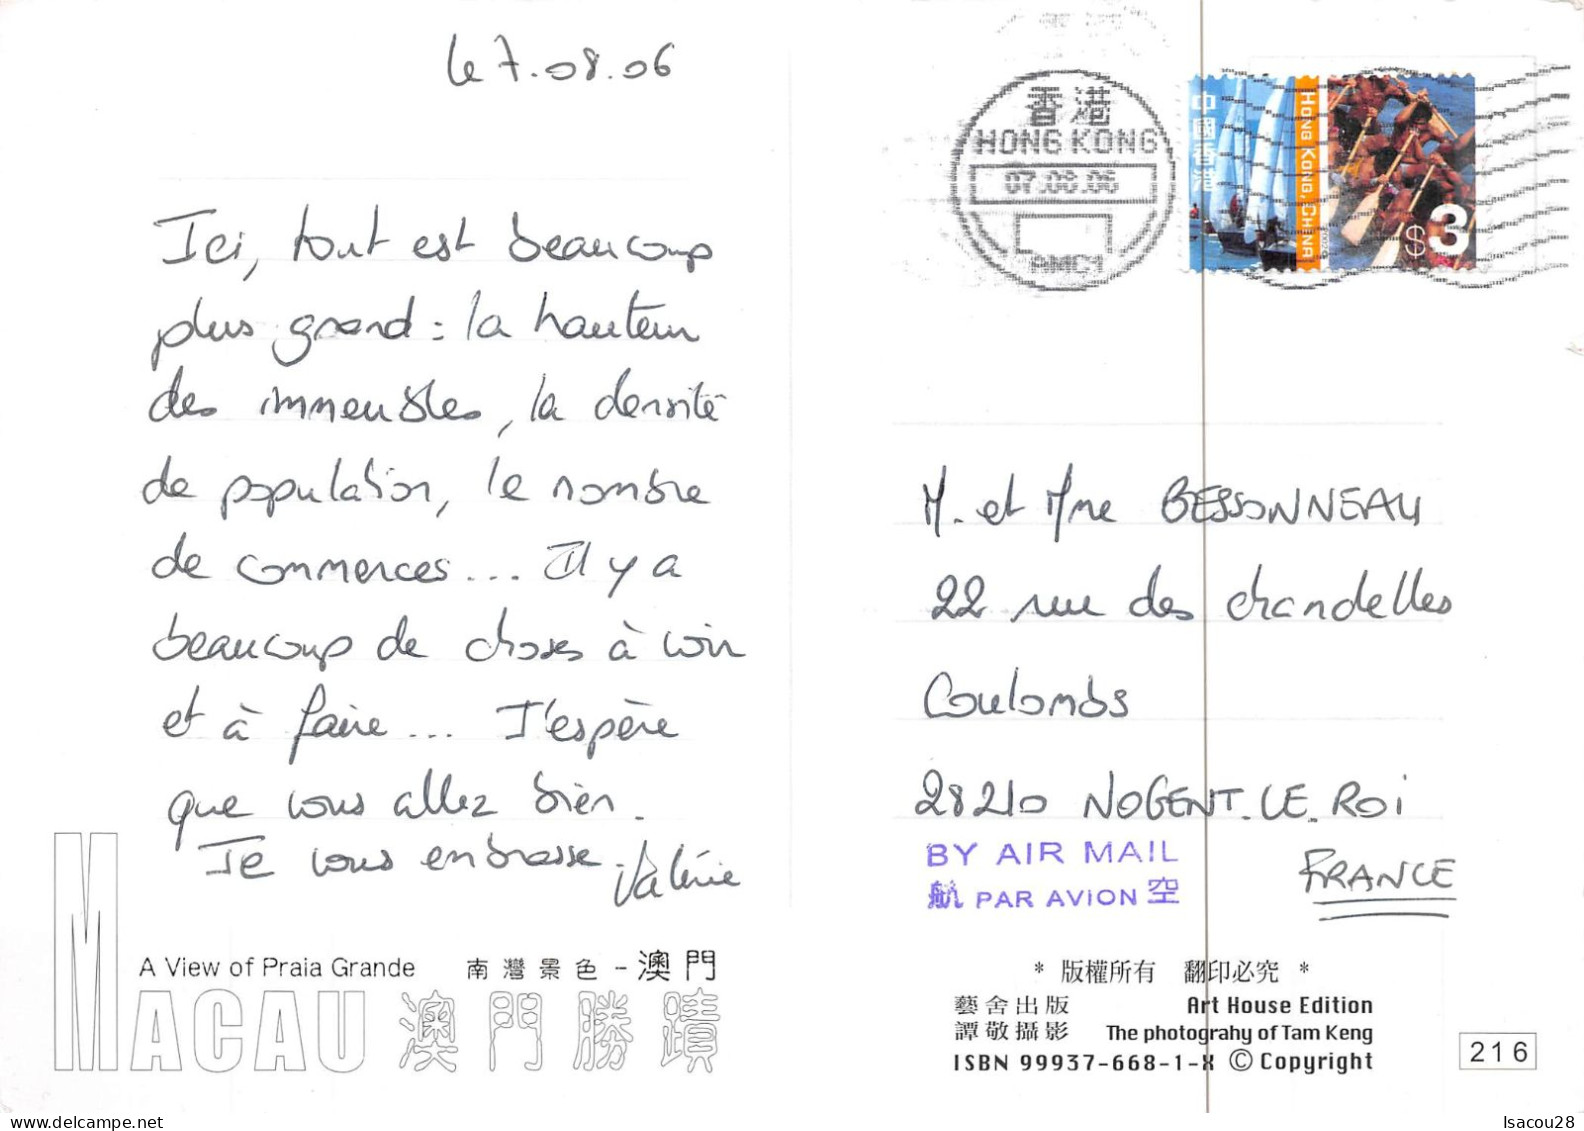 le 7.08.06
Ici, tout est beaucoup
plus grand : la hauteur
des immeubles, la densité
de population, le nombre
de commerces... Il y a
beaucoup de choses à voir
et à faire... J'espère
que vous allez bien.
Je vous embrasse.
Valérie
A View of Praia Grande 南灣景色-澳門
MACAU 澳門勝蹟
香港
HONG KONG
07.08.06
AMC1
中國香港
HONG KONG, CHINA
$3
M. et Mme BESSONNEAU
22 rue des chandelles
Coulombs
28210 NOGENT.LE.ROI
FRANCE
BY AIR MAIL
航 PAR AVION 空
* 版權所有 翻印必究 *
藝舍出版 Art House Edition
譚敬攝影 The photograhy of Tam Keng
ISBN 99937-668-1-X © Copyright
216
Isacou28